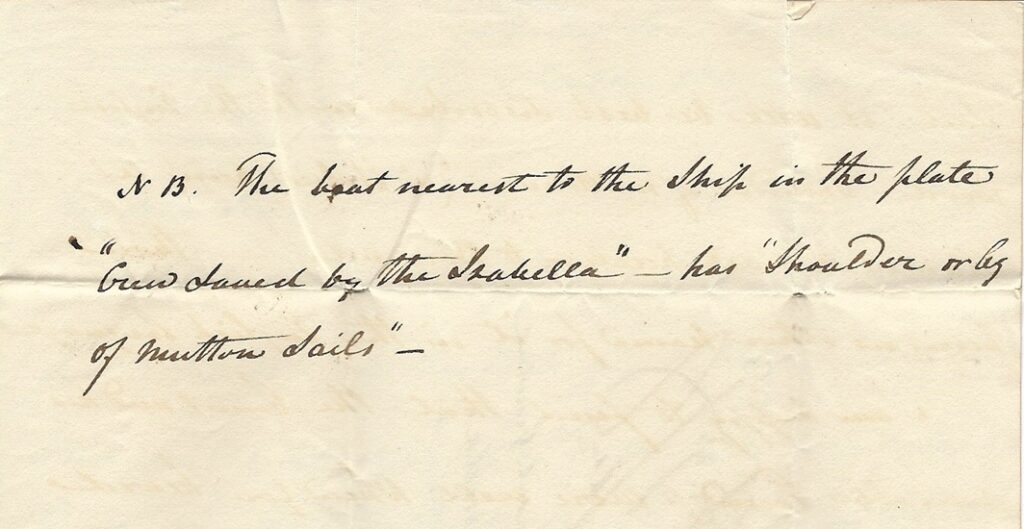 NB. The boat nearest to the Ship in the plate
"Crew Saved by the Isabella" — has "Shoulder or leg
of Mutton Sails" —